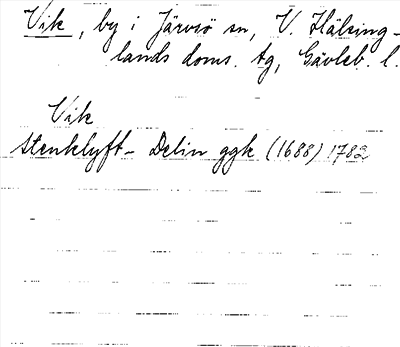 Vik, by i Järvsö sn, V. Hälsing-
lands doms. tg, Gävleb. l.
Vik
Stenklyft- Delin ggk (1688) 1782